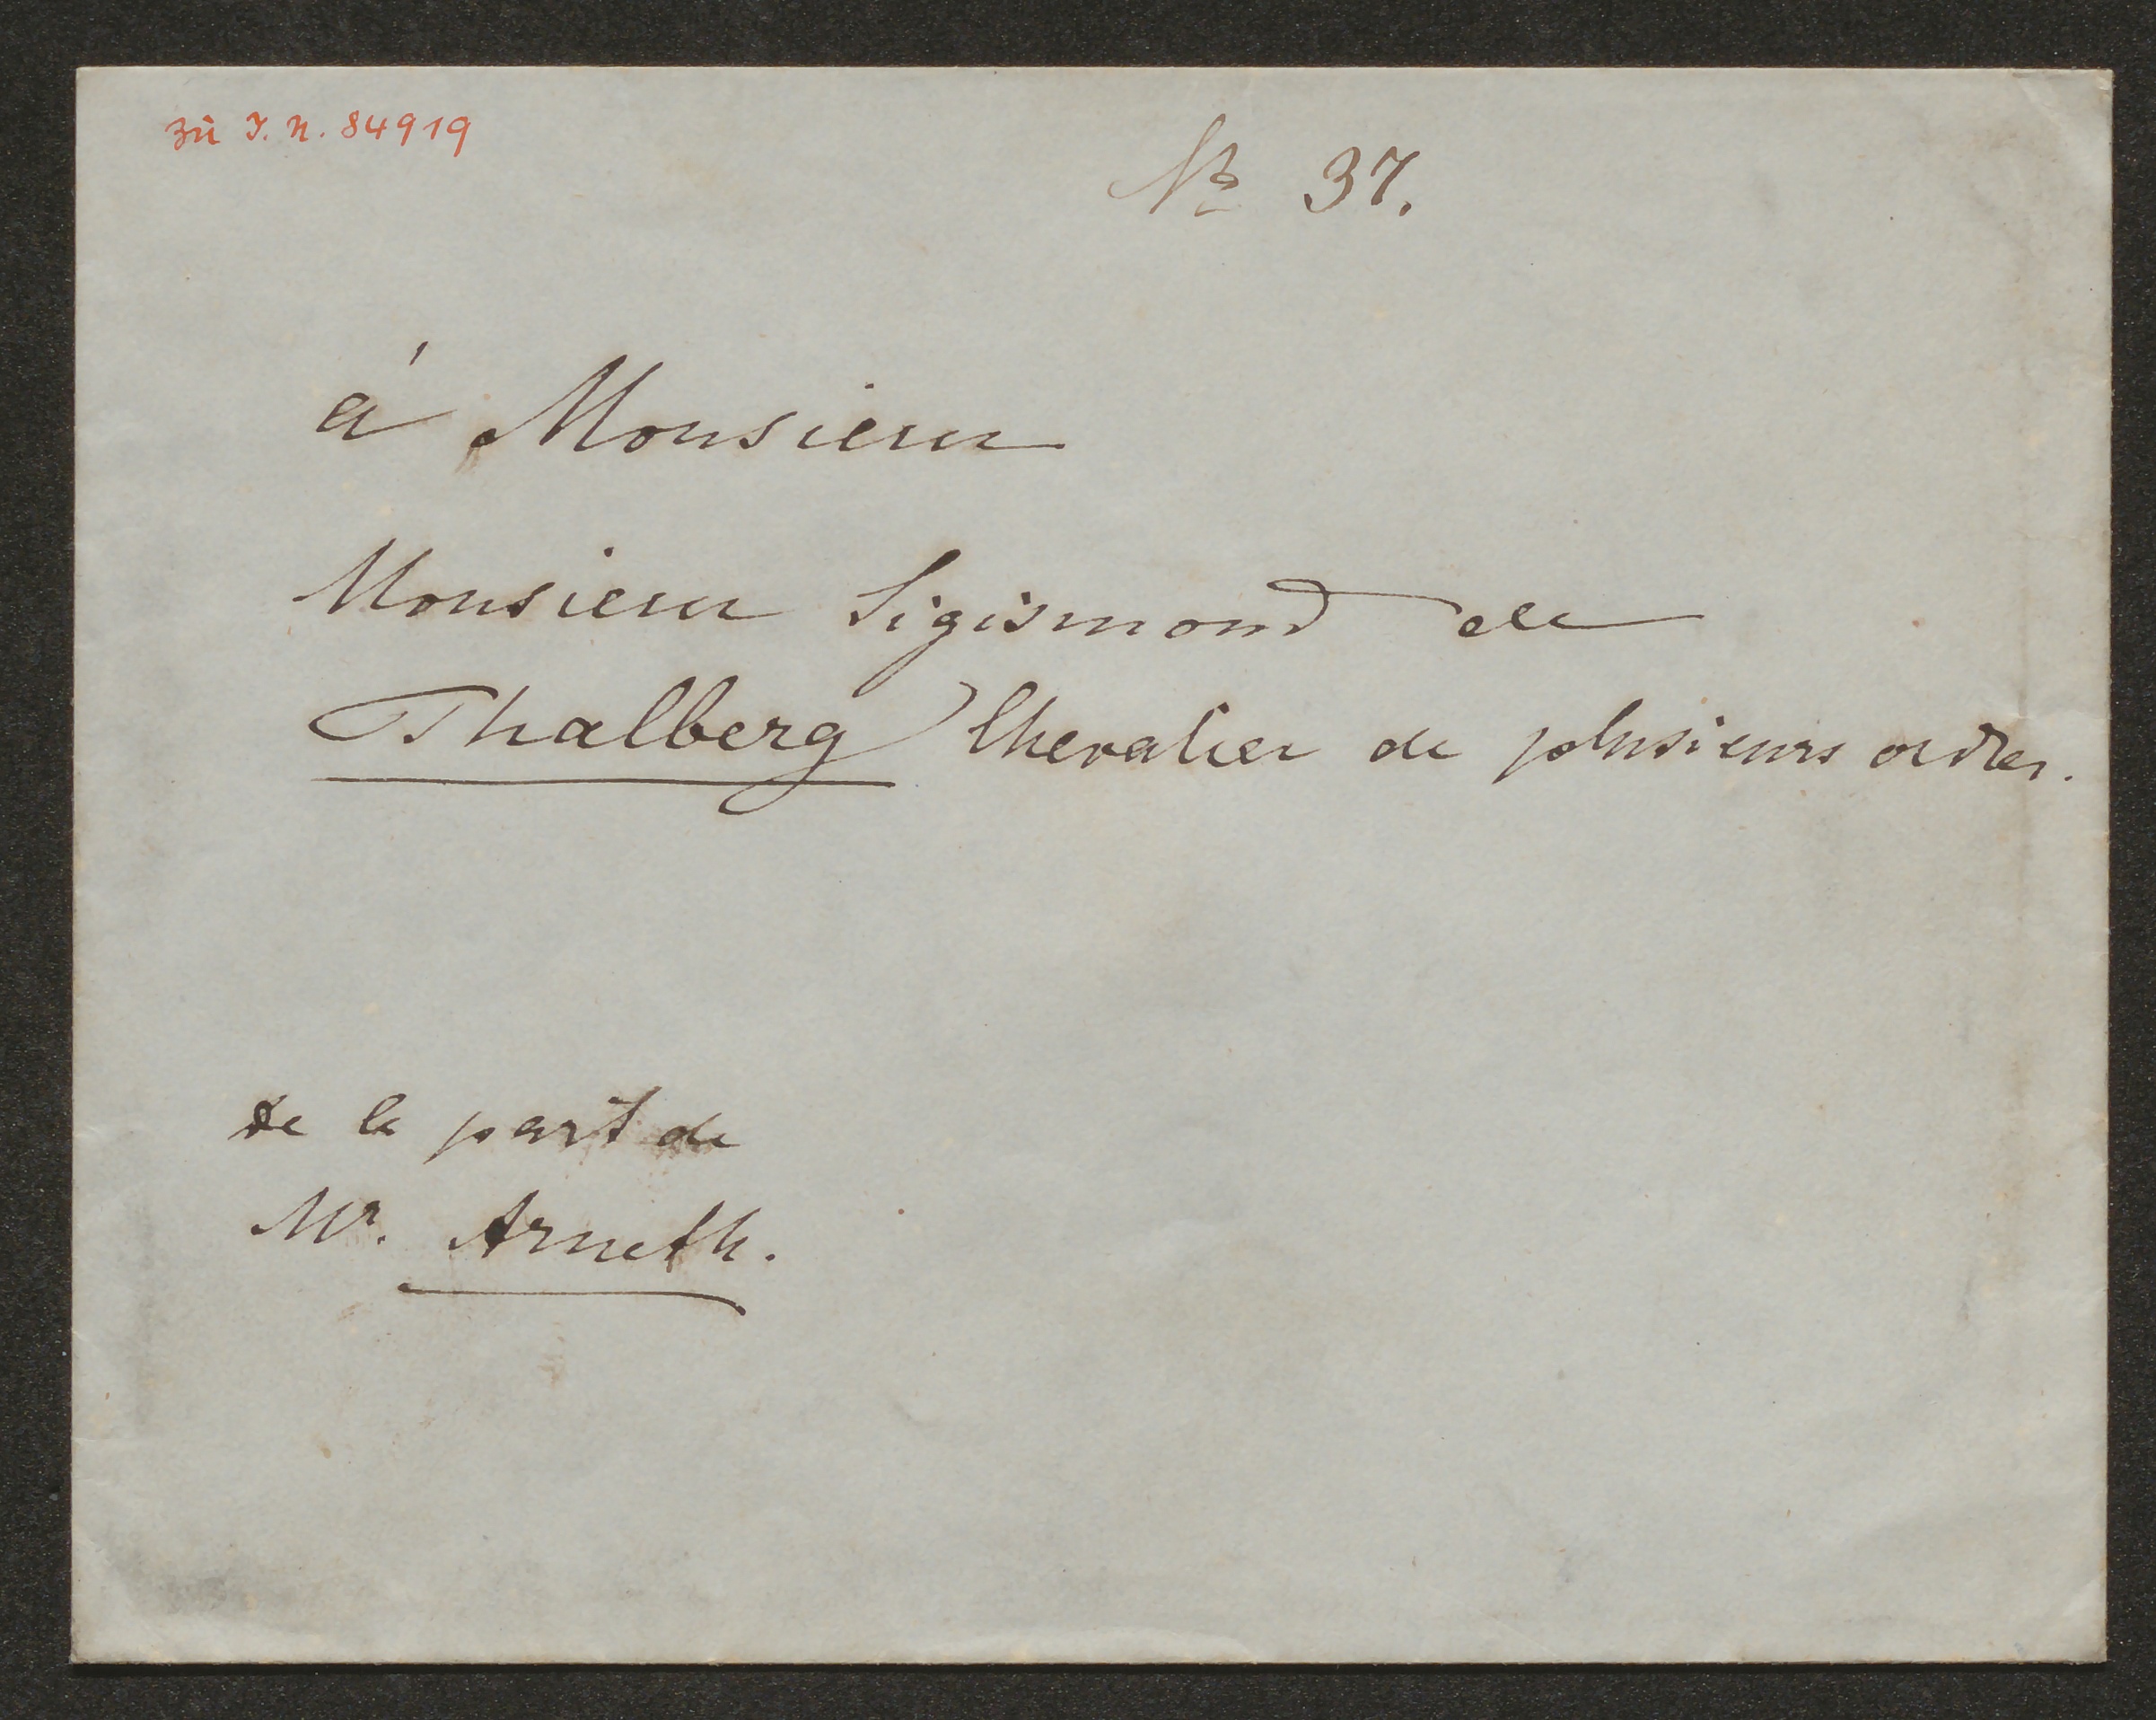 zu I. N. 84919
No 37.
á Monsieur
Monsieur Sigismond de
Thalberg Chevalier de plusieurs ordres.
de la part de
Mr. Arneth.